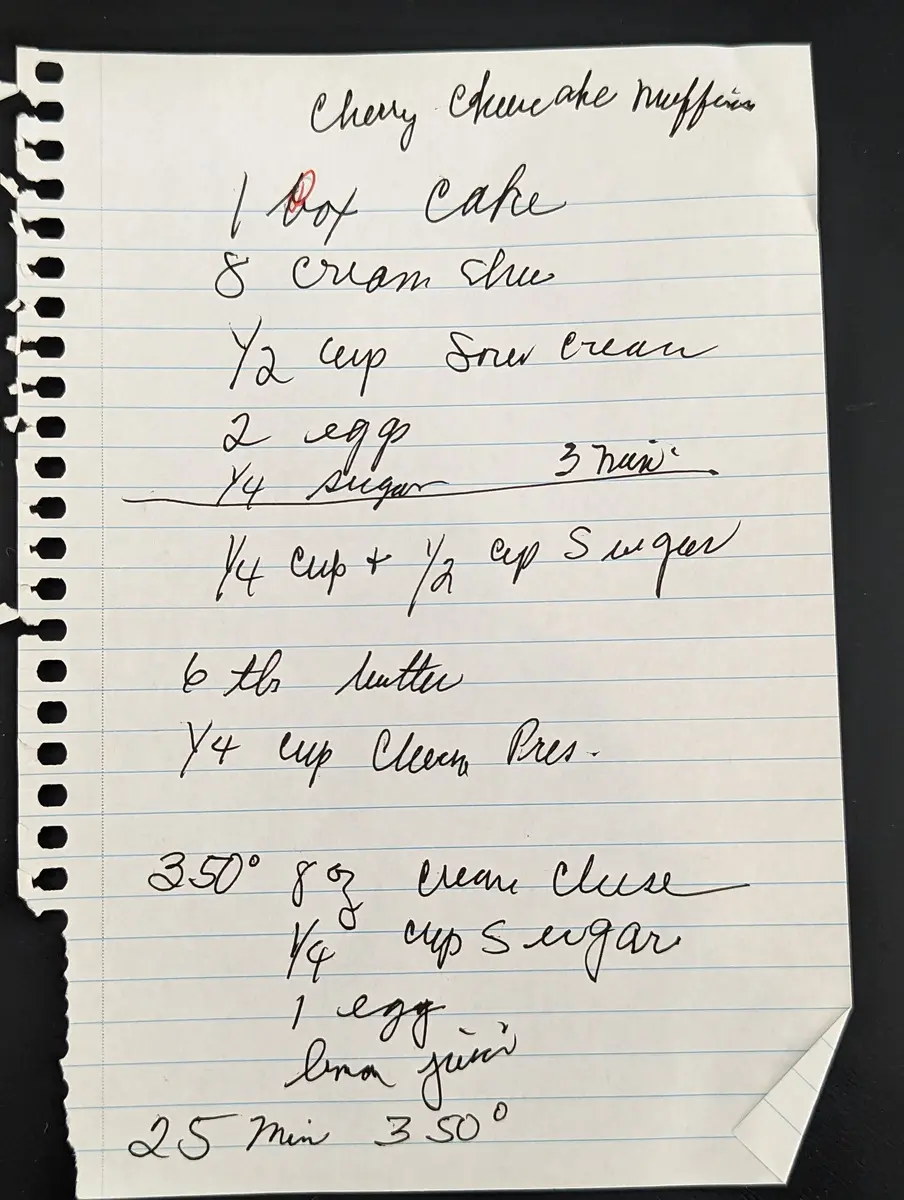 Cherry Cheescake Muffins
1 box Cake
8 cream chee
1/2 cup Sour cream
2 eggs
1/4 sugar 3 min.
1/4 cup + 1/2 cup Sugar
6 tbs butter
1/4 cup Cherry Pres.
350° 8 oz cream cheese
1/4 cup Sugar
1 egg
lemon juice
25 Min 350°